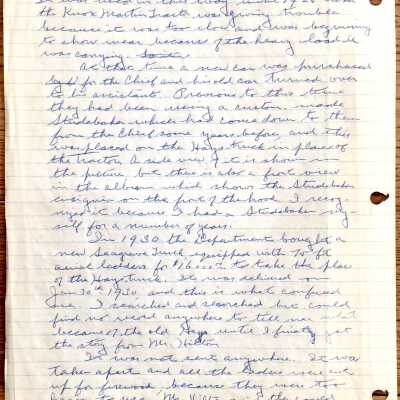 It was used in this way until 1928 when
the Knox Martin Tractor was giving trouble
because it was too slow and was beginning
to show wear because of the heavy load it
was carrying.
At that time a new car was purchased
for the Chief and his old car turned over
to his assistant. Previous to this time
they had been using a custom made
Studebaker which had come down to them
from the Chief some years before, and this
was placed on the Hays truck in place of
the tractor. A side view of it is shown in
the picture, but there is also a front view
in the album which shows the Studebaker
insignia on the front of the hood. I recog-
nized it because I had a Studebaker my-
self for a number of years.
In 1930 the Department bought a
new Seagrave Truck equipped with 75 ft
aerial ladders for to take the place
of the Hays truck. It was delivered on
Jan 30th 1930 and this is what confused
me. I searched and searched but could
find no record anywhere to tell me what
became of the old Hays until I finally got
the story from Mr. Hilton
It was not sent anywhere. It was
taken apart and all the ladders were cut
up for firewood because they were too
to use. Mr.